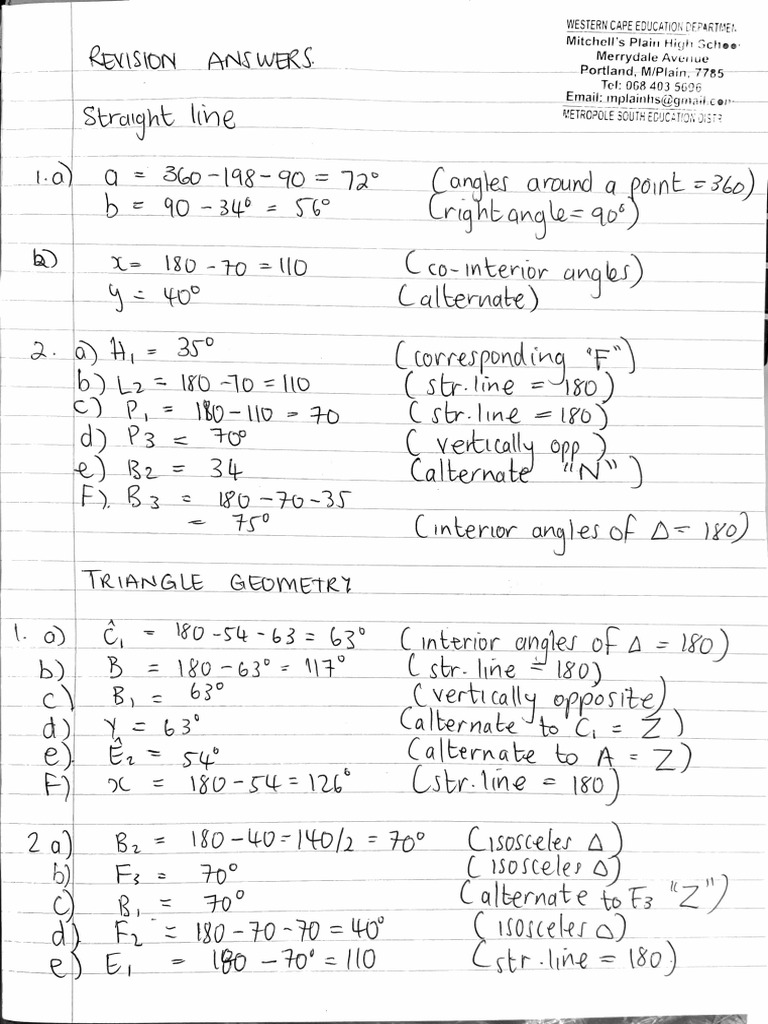 WESTERN CAPE EDUCATION DEPARTMEN
Mitchell's Plain High School
Merrydale Avenue
Portland, M/Plain, 7785
Tel: 068 403 5696
Email: mplainhs@gmail.com
METROPOLE SOUTH EDUCATION DISTR
REVISION ANSWERS.
Straight line
1.a) a = 360-198-90 = 72° (angles around a point = 360)
b = 90-34° = 56° (right angle = 90°)
b) x = 180-70 = 110 (co-interior angles)
y = 40° (alternate)
2. a) H₁ = 35° (corresponding "F")
b) L₂ = 180-70 = 110 (str.line = 180)
c) P₁ = 180-110 = 70 (str.line = 180)
d) P₃ = 70° (vertically opp)
e) B₂ = 34 (alternate "N")
F). B₃ = 180-70-35
= 75° (interior angles of Δ = 180)
TRIANGLE GEOMETRY
1. a) Ĉ₁ = 180-54-63 = 63° (interior angles of Δ = 180)
b) B = 180-63° = 117° (str.line = 180)
c) B₁ = 63° (vertically opposite)
d) Y = 63° (alternate to C₁ = Z)
e) Ê₂ = 54° (alternate to A = Z)
F) x = 180-54 = 126° (str.line = 180)
2 a) B₂ = 180-40 = 140/2 = 70° (isosceles Δ)
b) F₃ = 70° (isosceles Δ)
c) B₁ = 70° (alternate to F₃ "Z")
d) F₂ = 180-70-70 = 40° (isosceles Δ)
e) E₁ = 180-70° = 110 (str.line = 180)